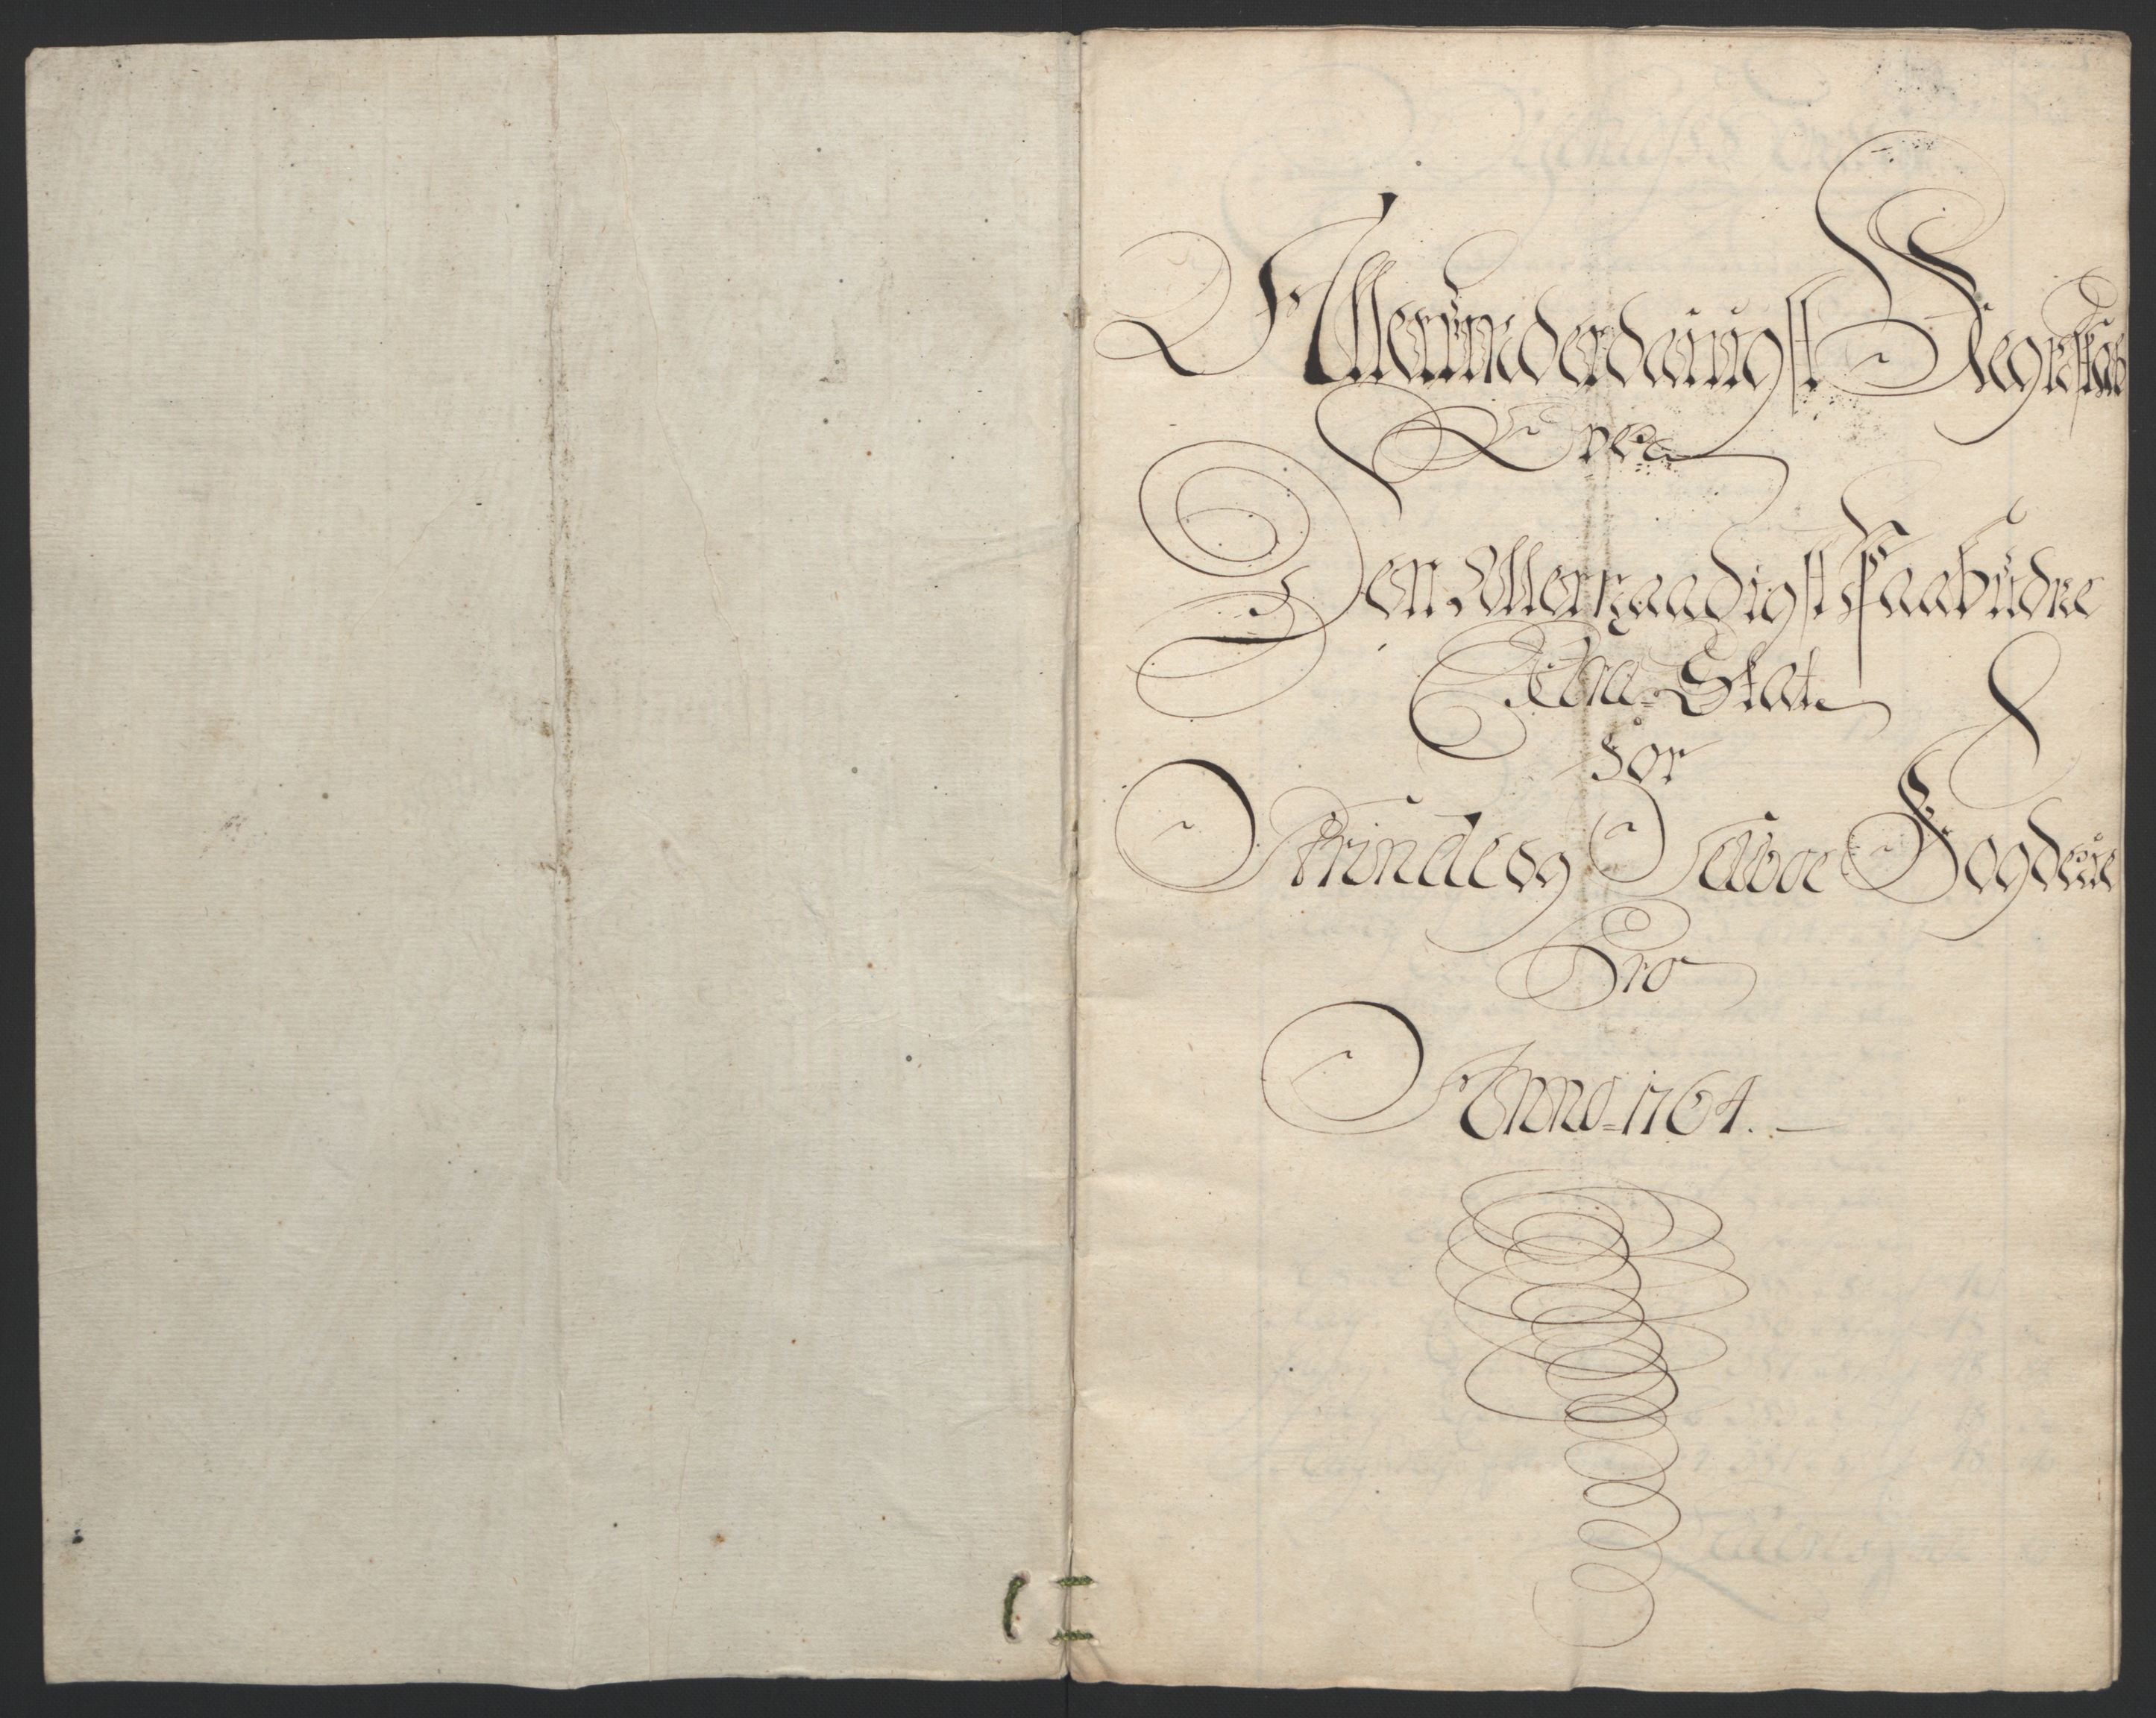 Allerunderdanigst Regnskab
Over
Den Allernaadigst Paabudne
Extra Skat
for
Strinde og Selboe Fogderie
Pro
Anno 1764.